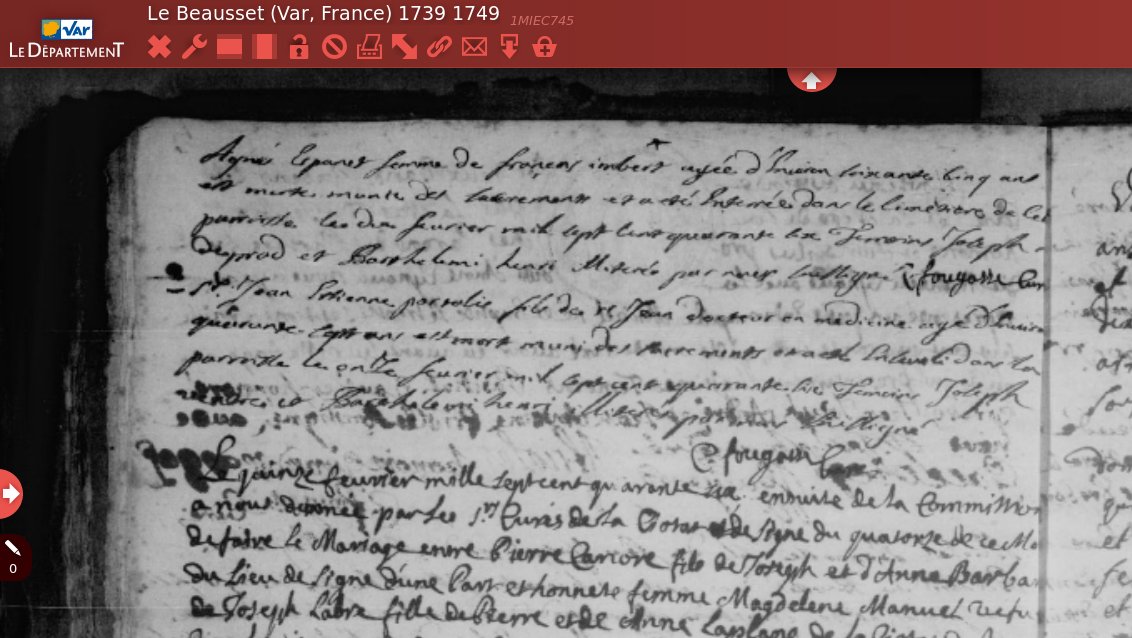 Le Beausset (Var, France) 1739 1749
1MIEC745
VAR
LE DÉPARTEMENT
femme de françois imbert agée d'Environ soixante cinq ans
est morte munie des sacrements et a eté Enterrée dans le cimetiere de
parroisse le dix feurier mil sept cent quarante six Temoins Joseph
et Barthelemi henri
fougasse Cur
Sr. Jean Estienne portalis fils du Sr Jean docteur en medicine agé d'Enuiron
quarante sept ans est mort muni des sacrements et a eté dans la
parroisse le onze feurier mil sept cent quarante six Temoins Joseph
et Barthelemi henri
fougasse
Le quinze feurier mille sept cent quarante six ensuite de la Commission
a nous donnée par Les Srs Curés de la et de Signe du quatorze de
de faire le Mariage entre Pierre fils de Joseph et d'Anne
du Lieu de Signe d'une Part et honnete femme Magdelene Manuel
de Joseph fille de Pierre et de Anne
0